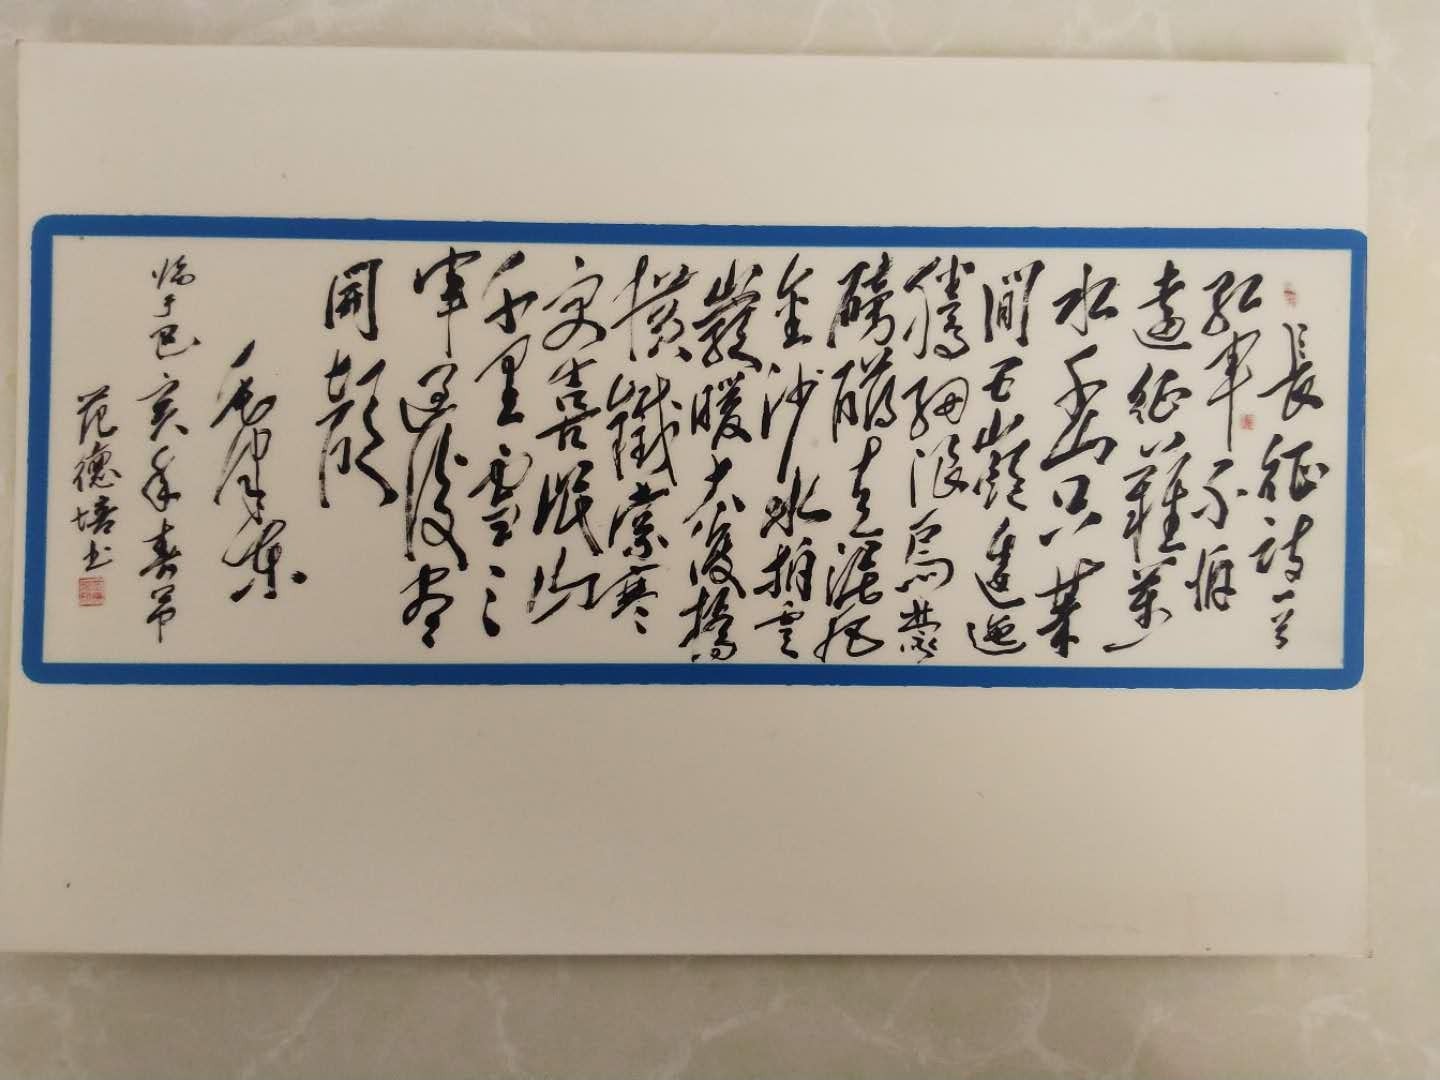 長征詩一首
紅軍不怕
遠征難萬
水千山只等
閒五嶺逶迤
騰細浪烏蒙
磅礴走泥丸
金沙水拍雲
巖暖大渡橋
橫鐵索寒
更喜岷山
千里雪三
軍過後盡
開顏
毛澤東
臨于己亥年春
范德培书